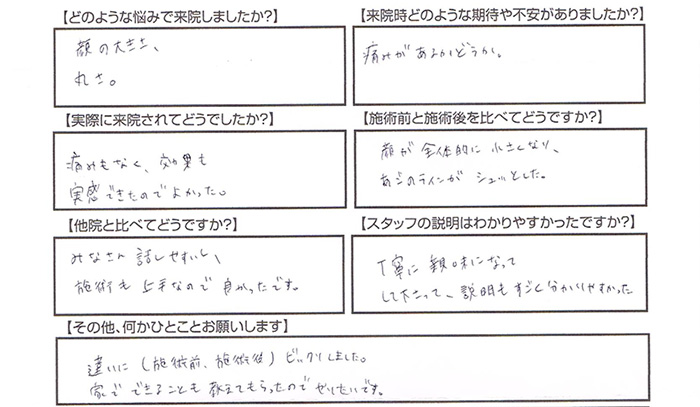 【どのような悩みで来院しましたか?】
顔の大きさ、
【来院時どのような期待や不安がありましたか?】
痛みがあるかどうか。
【実際に来院されてどうでしたか?】
痛みもなく、効果も
実感できたのでよかった。
【施術前と施術後を比べてどうですか?】
顔が全体的に小さくなり、
あごのラインがシュッとした。
【他院と比べてどうですか?】
みなさん話しやすいし、
施術も上手なので良かったです。
【スタッフの説明はわかりやすかったですか?】
丁寧に親味になって
して下さって、説明もすごく分かりやすかった
【その他、何かひとことお願いします】
違いに(施術前、施術後)ビックリしました。
家でできることも教えてもらったのでやりたいです。